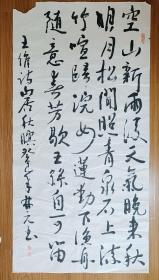 空山新雨後天氣晚来秋
明月松間照青泉石上流
竹喧歸浣女蓮動下漁舟
隨意春芳歇王孫自可留
王維詩山居秋暝癸年林元书